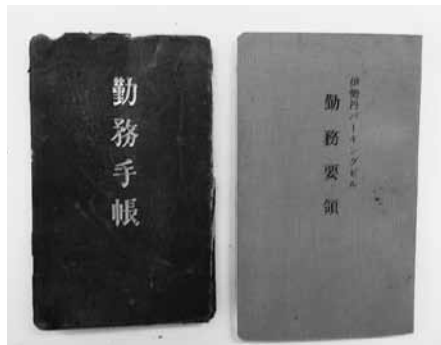 勤務手帳
伊勢丹パーキングビル
勤務要領